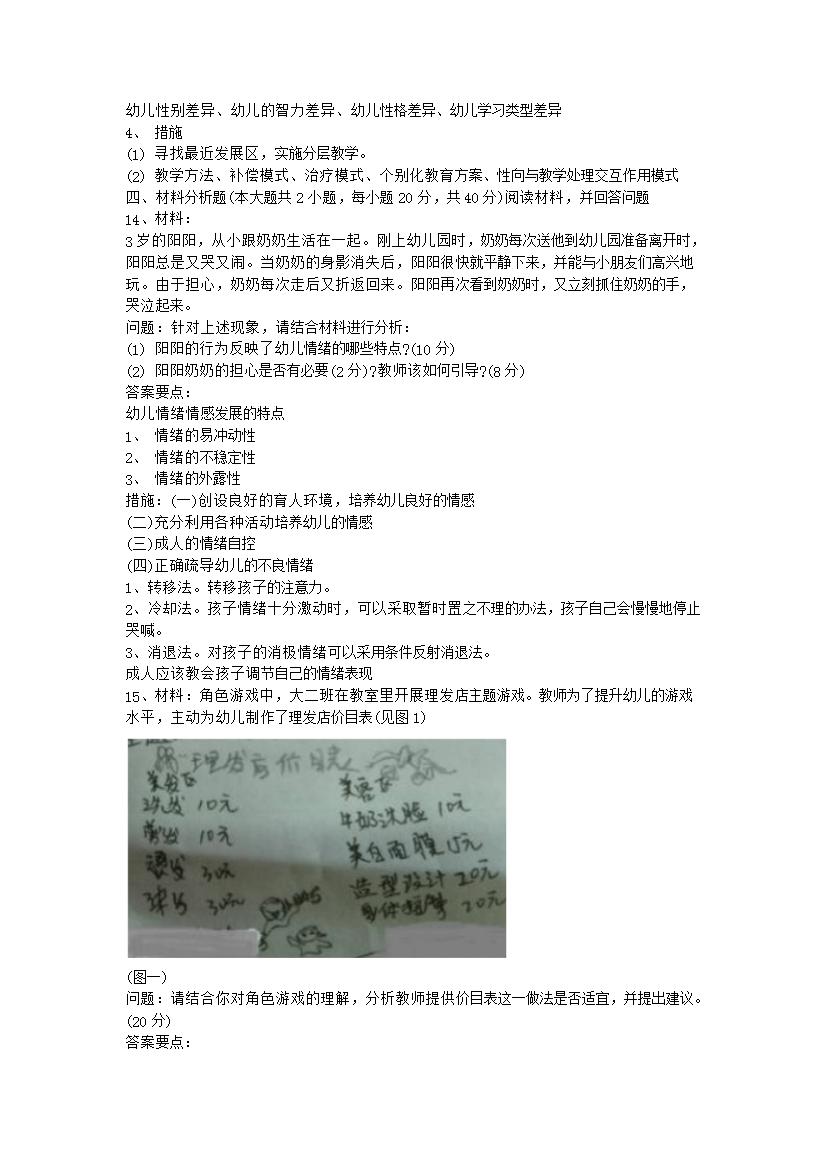 幼儿性别差异、幼儿的智力差异、幼儿性格差异、幼儿学习类型差异
4、 措施
(1) 寻找最近发展区，实施分层教学。
(2) 教学方法、补偿模式、治疗模式、个别化教育方案、性向与教学处理交互作用模式
四、材料分析题(本大题共 2 小题，每小题 20 分，共 40 分)阅读材料，并回答问题
14、材料：
3 岁的阳阳，从小跟奶奶生活在一起。刚上幼儿园时，奶奶每次送他到幼儿园准备离开时，
阳阳总是又哭又闹。当奶奶的身影消失后，阳阳很快就平静下来，并能与小朋友们高兴地
玩。由于担心，奶奶每次走后又折返回来。阳阳再次看到奶奶时，又立刻抓住奶奶的手，
哭泣起来。
问题：针对上述现象，请结合材料进行分析：
(1) 阳阳的行为反映了幼儿情绪的哪些特点?(10 分)
(2) 阳阳奶奶的担心是否有必要(2 分)?教师该如何引导?(8 分)
答案要点：
幼儿情绪情感发展的特点
1、 情绪的易冲动性
2、 情绪的不稳定性
3、 情绪的外露性
措施：(一)创设良好的育人环境，培养幼儿良好的情感
(二)充分利用各种活动培养幼儿的情感
(三)成人的情绪自控
(四)正确疏导幼儿的不良情绪
1、转移法。转移孩子的注意力。
2、冷却法。孩子情绪十分激动时，可以采取暂时置之不理的办法，孩子自己会慢慢地停止
哭喊。
3、消退法。对孩子的消极情绪可以采用条件反射消退法。
成人应该教会孩子调节自己的情绪表现
15、材料：角色游戏中，大二班在教室里开展理发店主题游戏。教师为了提升幼儿的游戏
水平，主动为幼儿制作了理发店价目表(见图 1)
理发店价目表
美发区
洗发 10元
剪发 10元
烫发 30元
30元
美容区
牛奶洗脸 10元
美白面膜 15元
造型设计 20元
身体按摩 20元
(图一)
问题：请结合你对角色游戏的理解，分析教师提供价目表这一做法是否适宜，并提出建议。
(20 分)
答案要点：